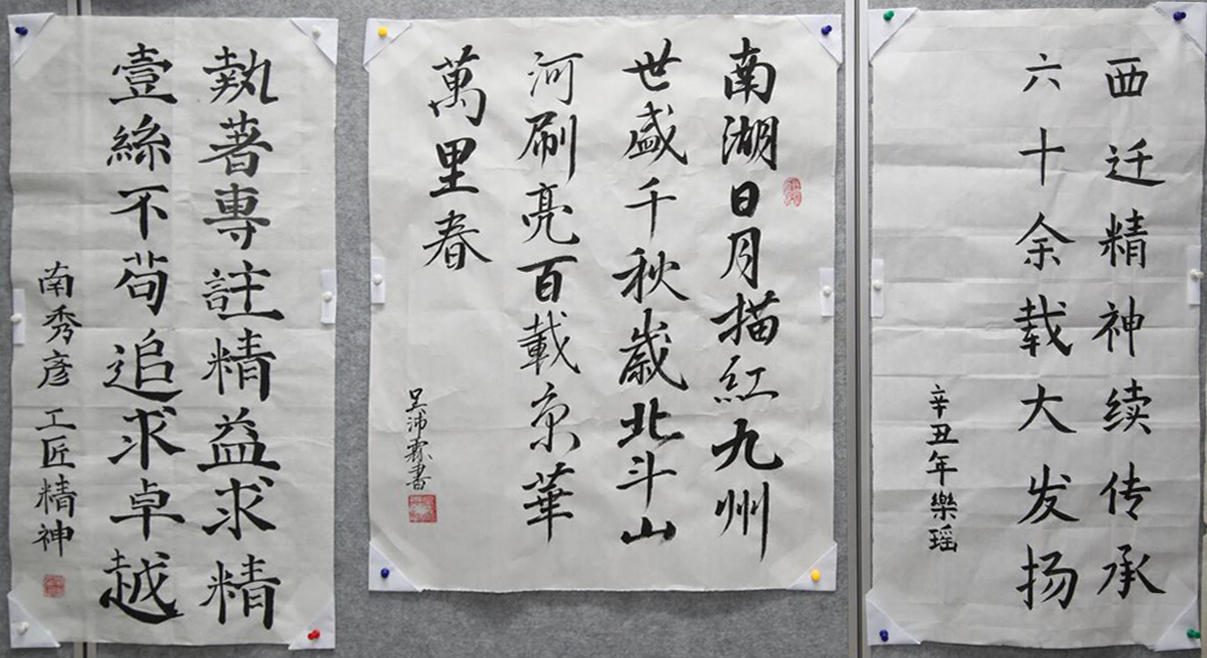 執著專註精益求精
壹絲不苟追求卓越
南秀彦 工匠精神
南湖日月描紅九州
世盛千秋歲北斗山
河刷亮百載京華
萬里春
吴沛霖書
西迁精神续传承
六十余载大发扬
辛丑年樂瑶